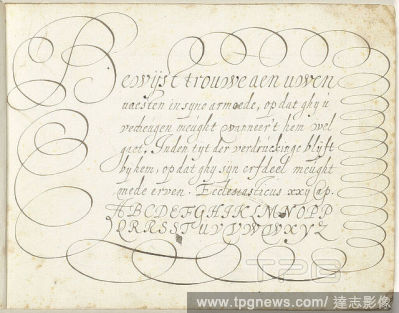 Bewijst trouwe aen uwen
naesten in syne armoede, op dat ghy u
verheugen meught wanneer't hem wel
gaet, Inden tyt der verdruckinge blijft
by hem, op dat ghy syn erfdeel meught
mede erven. Ecclesiasticus xxij Cap.
ABCDEFGHIKLMNOPP
QRRSSTUVVWWXYZ
TPG
www.tpgnews.com/達志影像